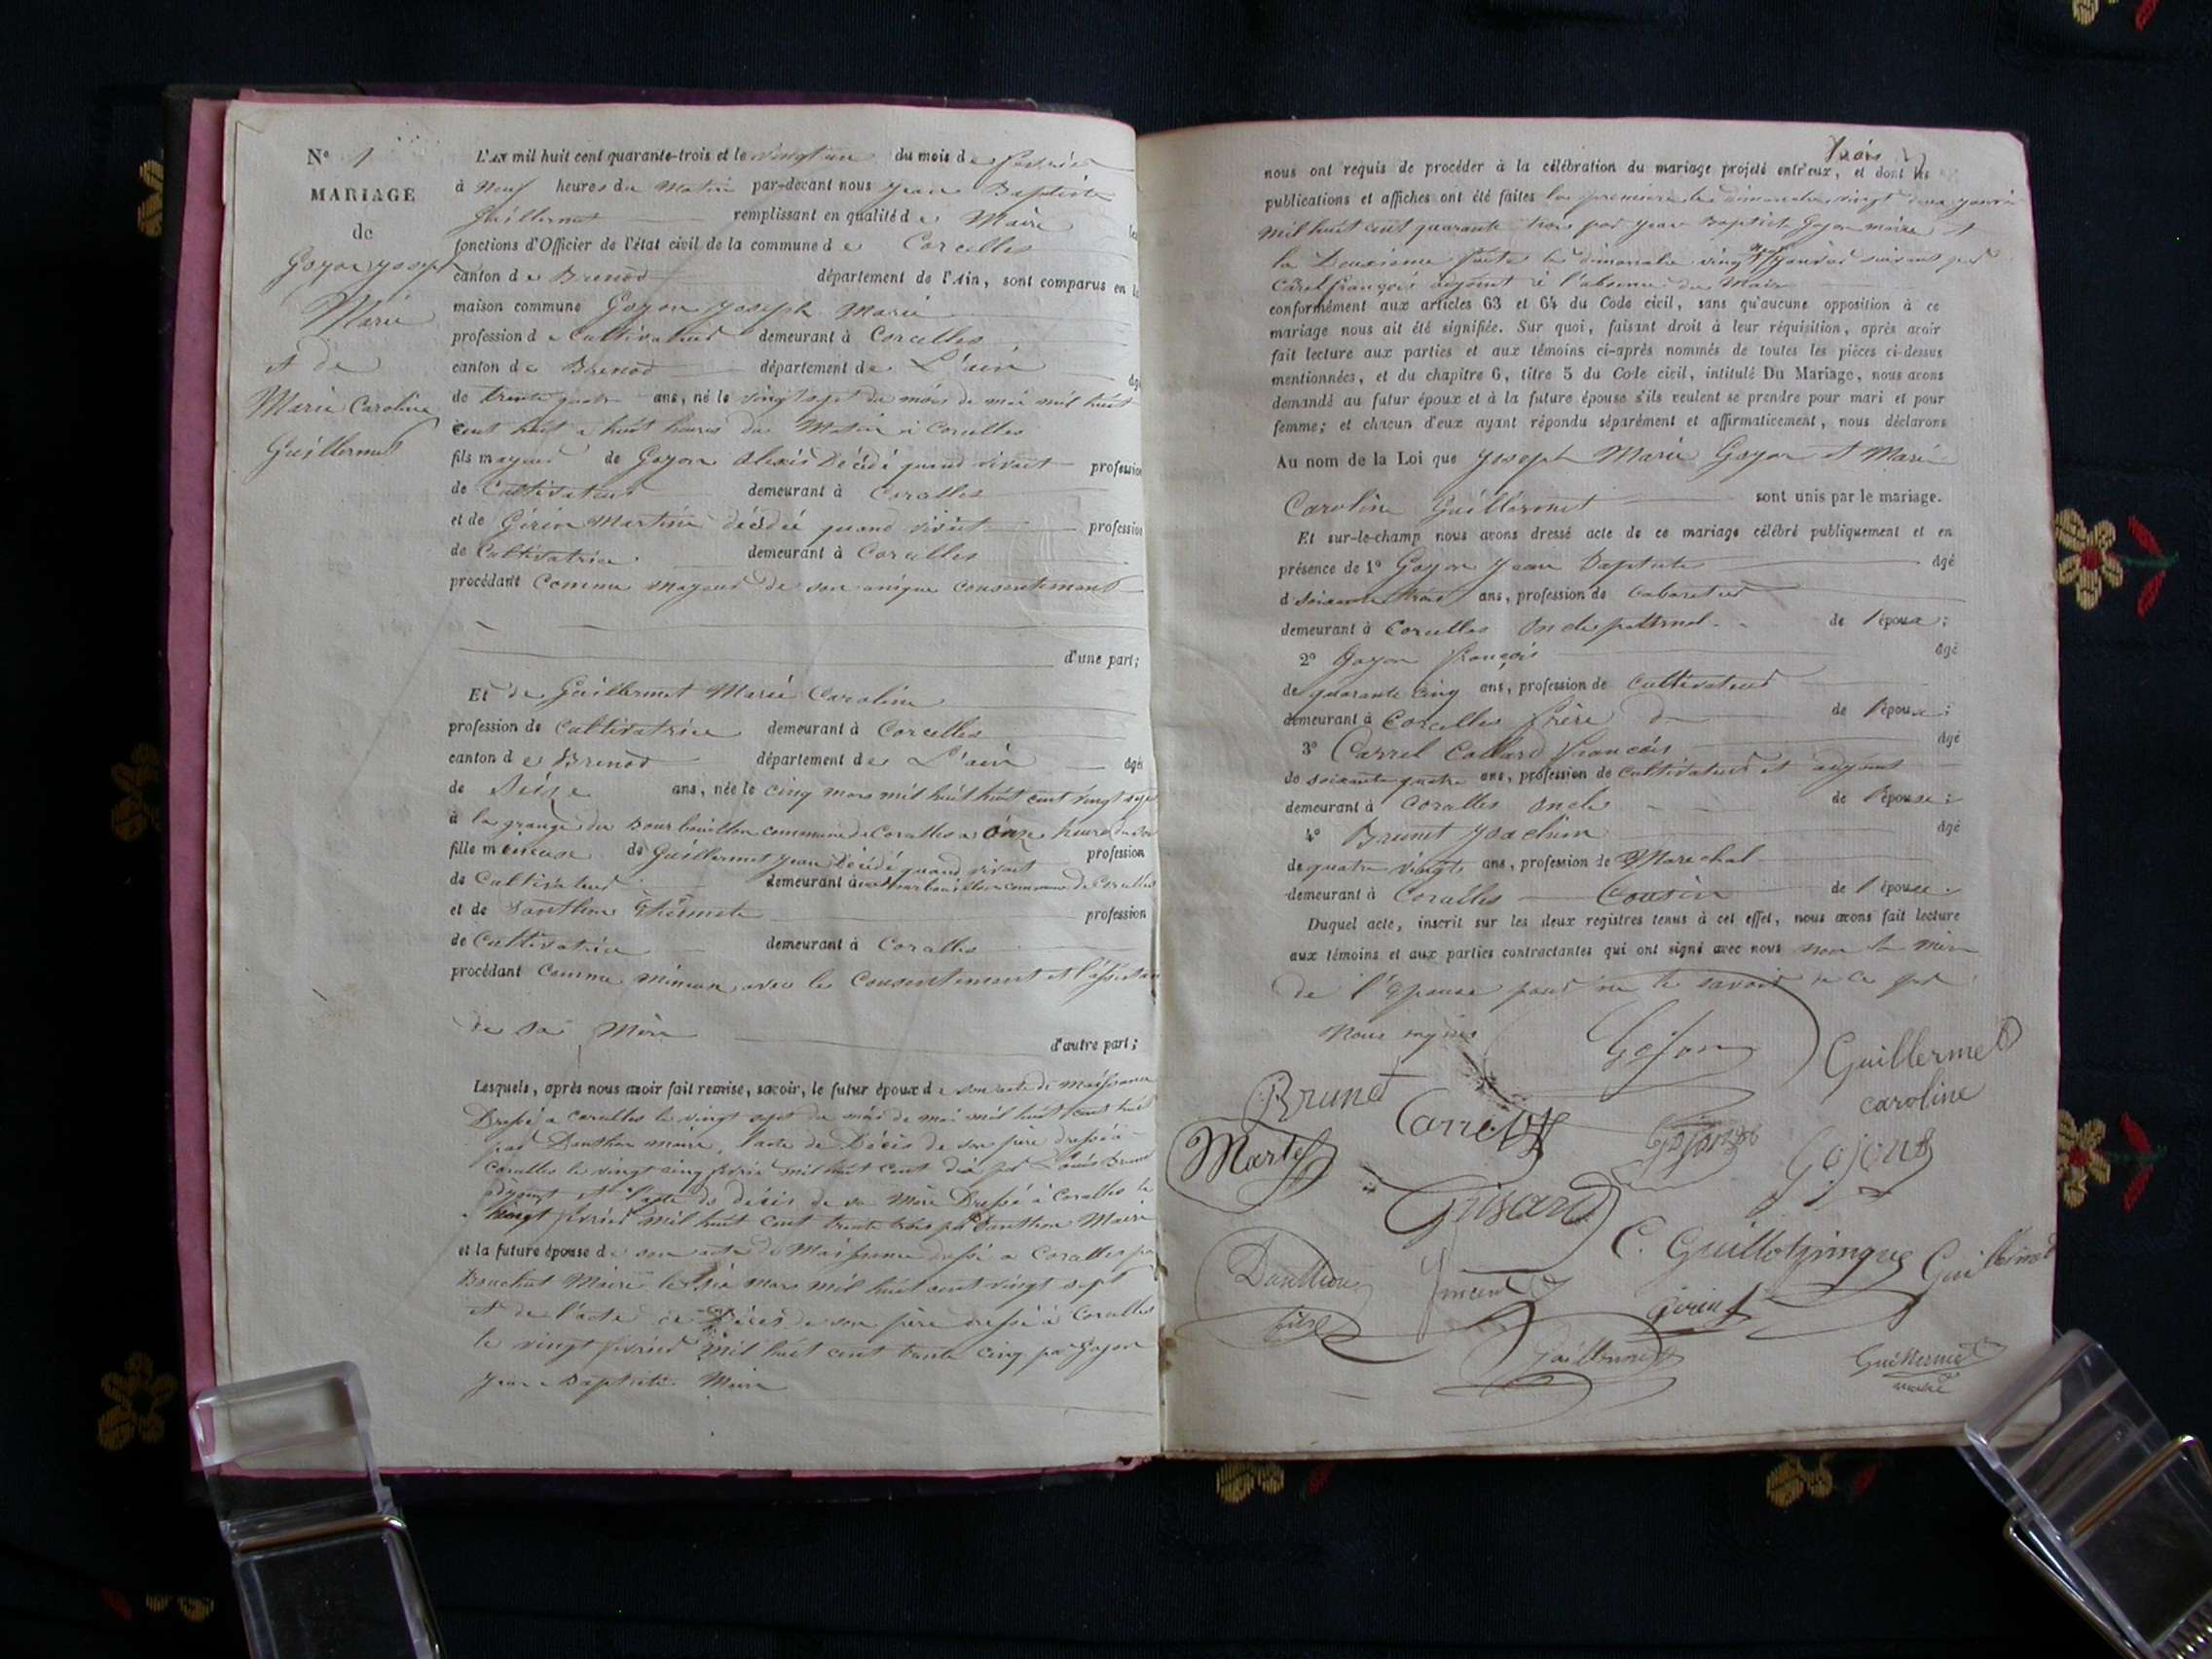 N° 1
MARIAGE
de
Goyon Joseph
Marie
et de
Marie Caroline
Guillermet
L'AN mil huit cent quarante-trois et le vingt un du mois de février
à Neuf heures du Matin par-devant nous Jean Baptiste
Guillermet remplissant en qualité de Maire les
fonctions d'Officier de l'état civil de la commune de Corcelles
canton de Brenod département de l'Ain, sont comparus en la
maison commune Goyon Joseph Marie
profession de Cultivateur demeurant à Corcelles
canton de Brenod département de L'ain âgé
de trente quatre ans, né le vingt sept du mois de mai mil huit
cent huit a huit heures du Matin à Corcelles
fils majeur de Goyon Alexis Décédé quand vivait profession
de Cultivateur demeurant à Corcelles
et de Girin Martine décédée quand vivait profession
de Cultivatrice demeurant à Corcelles
procédant Comme majeur de son unique consentement
d'une part;
Et de Guillermet Marie Caroline
profession de Cultivatrice demeurant à Corcelles
canton de Brenod département de L'ain âgée
de Seize ans, née le cinq mars mil huit huit cent vingt sept
à la grange du bourbouillon commune de Corcelles a onze heures du
fille mineure de Guillermet Jean Décédé quand vivait profession
de Cultivateur demeurant à bourbouillon commune de Corcelles
et de Danthon profession
de Cultivatrice demeurant à Corcelles
procédant Comme mineure avec le Consentement et l'assistance
de sa Mère
d'autre part;
Lesquels, après nous avoir fait remise, savoir, le futur époux de son acte de Naissance
Dressé a Corcelles le vingt sept du mois de mai mil huit cent huit
par Danthon maire, l'acte de Décès de son père dressé à
Corcelles le vingt cinq février mil huit cent dix par Louis Brunet
adjoint et l'acte de décès de sa Mère Dressé à Corcelles le
vingt février mil huit cent trente trois par Danthon Maire
et la future épouse de son acte de Naissance dressé a Corcelles par
Bouchut Maire le six mars mil huit cent vingt sept
et de l'acte de Décès de son père dressé à Corcelles
le vingt février mil huit cent trente cinq par Goyon
Jean Baptiste Maire
trois
nous ont requis de procéder à la célébration du mariage projeté entr'eux, et dont les
publications et affiches ont été faites la première le dimanche vingt deux janvier
mil huit cent quarante trois par Jean Baptiste Goyon maire et
la Deuxième faite le dimanche vingt neuf janvier suivant par
Carrel françois adjoint à l'absence du Maire
conformément aux articles 63 et 64 du Code civil, sans qu'aucune opposition à ce
mariage nous ait été signifiée. Sur quoi, faisant droit à leur réquisition, après avoir
fait lecture aux parties et aux témoins ci-après nommés de toutes les pièces ci-dessus
mentionnées, et du chapitre 6, titre 5 du Code civil, intitulé Du Mariage, nous avons
demandé au futur époux et à la future épouse s'ils veulent se prendre pour mari et pour
femme; et chacun d'eux ayant répondu séparément et affirmativement, nous déclarons
Au nom de la Loi que Joseph Marie Goyon et Marie
Caroline Guillermet sont unis par le mariage.
Et sur-le-champ nous avons dressé acte de ce mariage célébré publiquement et en
présence de 1° Goyon Jean Baptiste âgé
d soixante trois ans, profession de Cabaretier
demeurant à Corcelles oncle paternel de l'époux;
2° Goyon françois âgé
de quarante cinq ans, profession de Cultivateur
demeurant à Corcelles frère de l'époux;
3° Carrel Collard françois âgé
de soixante quatre ans, profession de cultivateur et adjoint
demeurant à Corcelles oncle de l'épouse;
4° Brunet Joachim âgé
de quatre vingts ans, profession de Maréchal
demeurant à Corcelles Cousin de l'épouse.
Duquel acte, inscrit sur les deux registres tenus à cet effet, nous avons fait lecture
aux témoins et aux parties contractantes qui ont signé avec nous non la mère
de l'épouse pour ne le savoir
Goion
Guillermet
caroline
Brunet
Carrel
Goion
Martel
Grisard
C. Guillot
Guillermet
Danthon
Vincent
Girin
Guillermet
Guillermet
maire